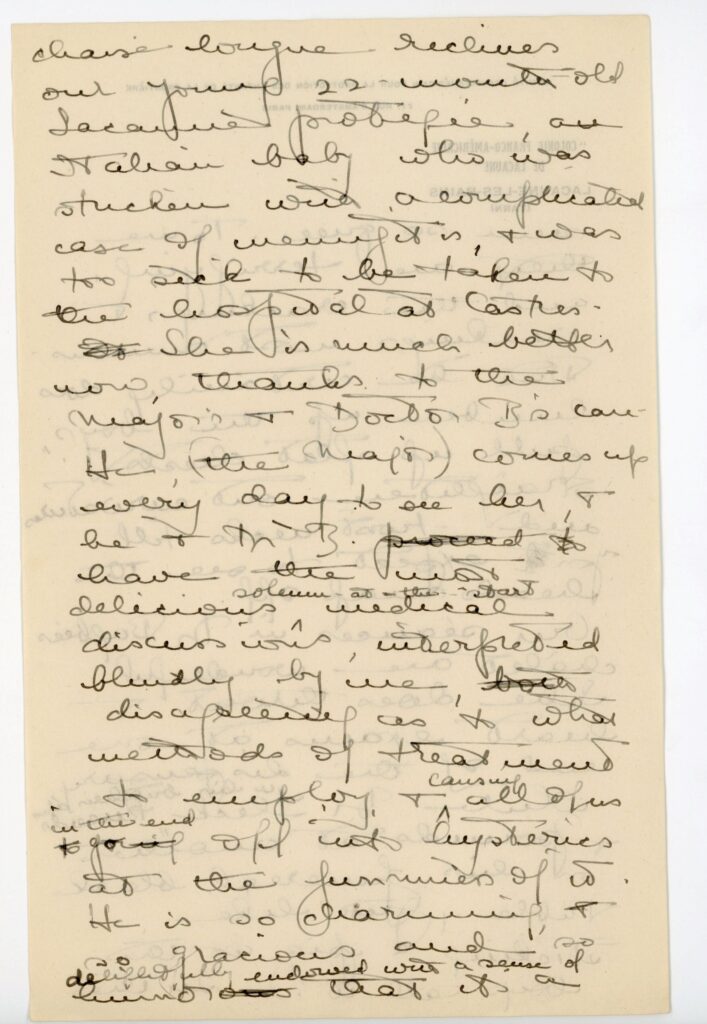 chaise longue reclines
our young 22-month old
Lacaune protégée, an
Italian baby who was
stricken with a complicated
case of meningitis, & was
too sick to be taken to
the hospital at Castres.
She is much better
now, thanks to the
Major's & Doctor B's care.
He (the Major) comes up
every day to see her, &
he & Dr B proceed to
have the most
solemn-at-the-start
delicious medical
discussions, interpreted
blindly by me, both
disagreeing as to what
methods of treatment
to employ, & causing all of us
in the end
to going off into hysterics
at the funnies of it.
He is so charming &
so gracious and so
delightfully endowed with a sense of
humorous that it's a